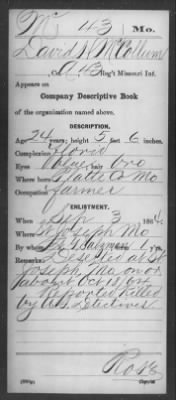 Mc 43 Mo.
David N McCollum
, Co. A, 43 Reg't Missouri Inf.
Appears on
Company Descriptive Book
of the organization named above.
DESCRIPTION.
Age 24 years; height 5 feet 6 inches.
Complexion Florid
Eyes Gray; hair bro
Where born Platte Co Mo
Occupation farmer
ENLISTMENT.
When Sep 3, 1864.
Where St Joseph Mo
By whom term 1 y'rs.
Remarks: Deserted at St
Joseph, Mo on or
about Oct 18/64
Reported killed
by U.S. Detectives
Rose
Copyist.